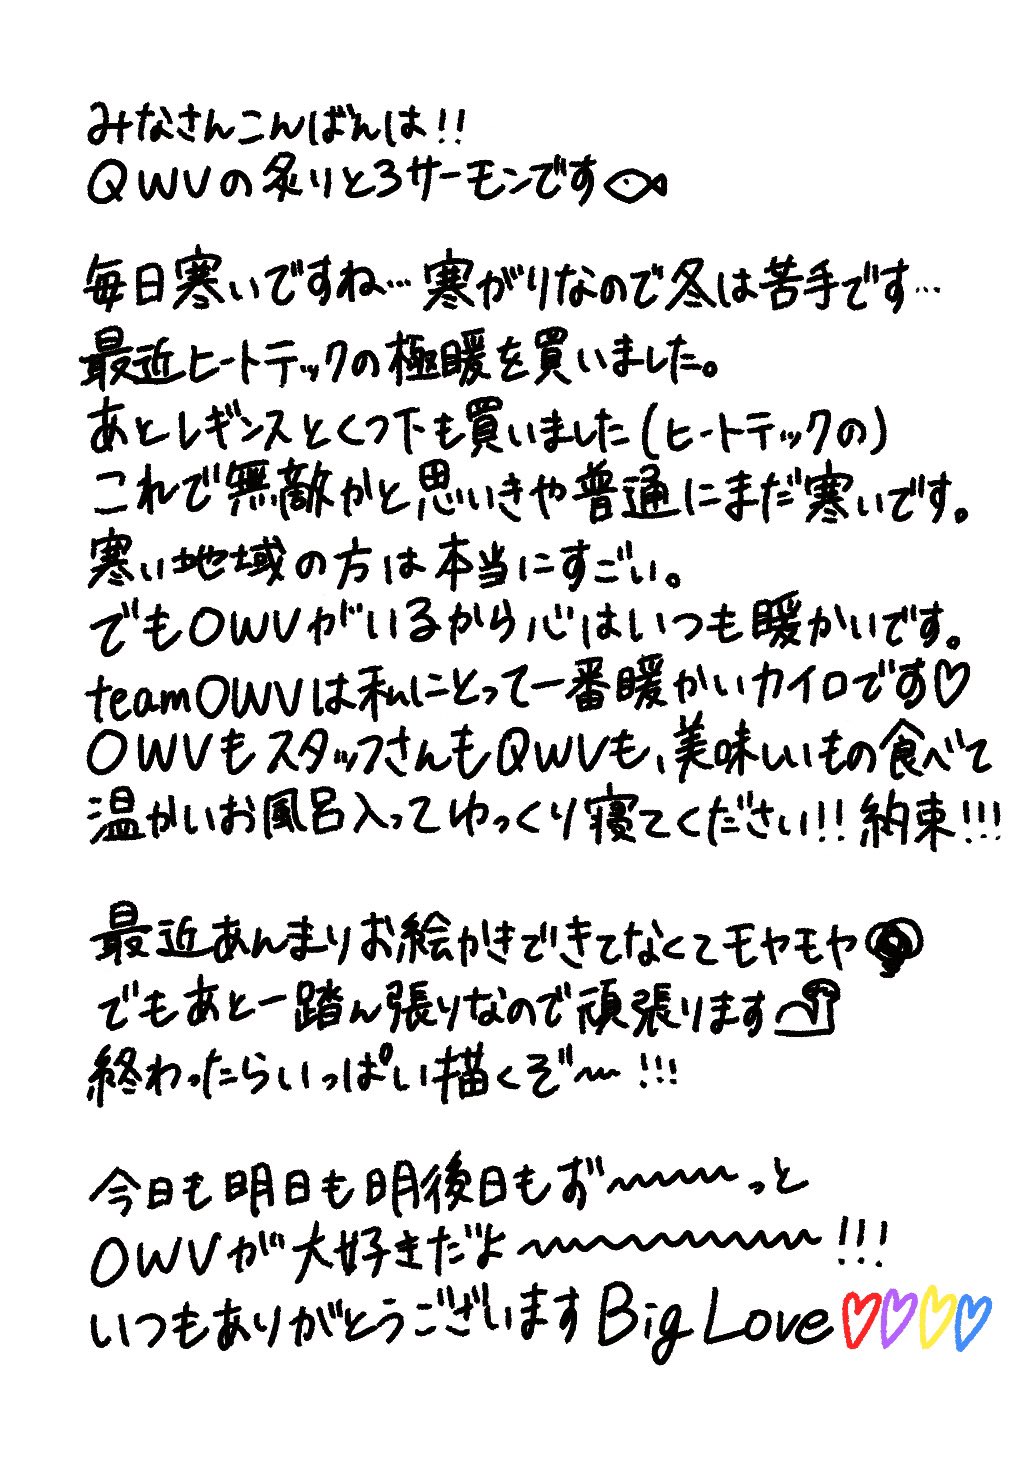 みなさんこんばんは!!
QWVの炙りとろサーモンです
毎日寒いですね…寒がりなので冬は苦手です…
最近ヒートテックの極暖を買いました。
あとレギンスとくつ下も買いました(ヒートテックの)
これで無敵かと思いきや普通にまだ寒いです。
寒い地域の方は本当にすごい。
でもOWVがいるから心はいつも暖かいです。
teamOWVは私にとって一番暖かいカイロです♡
OWVもスタッフさんもQWVも、美味しいもの食べて
温かいお風呂入ってゆっくり寝てください!!約束!!!
最近あんまりお絵かきできてなくてモヤモヤ
でもあと一踏ん張りなので頑張ります
終わったらいっぱい描くぞ〜!!!
今日も明日も明後日もず〜〜〜っと
OWVが大好きだよ〜〜〜〜〜〜!!!
いつもありがとうございます Big Love♡♡♡♡